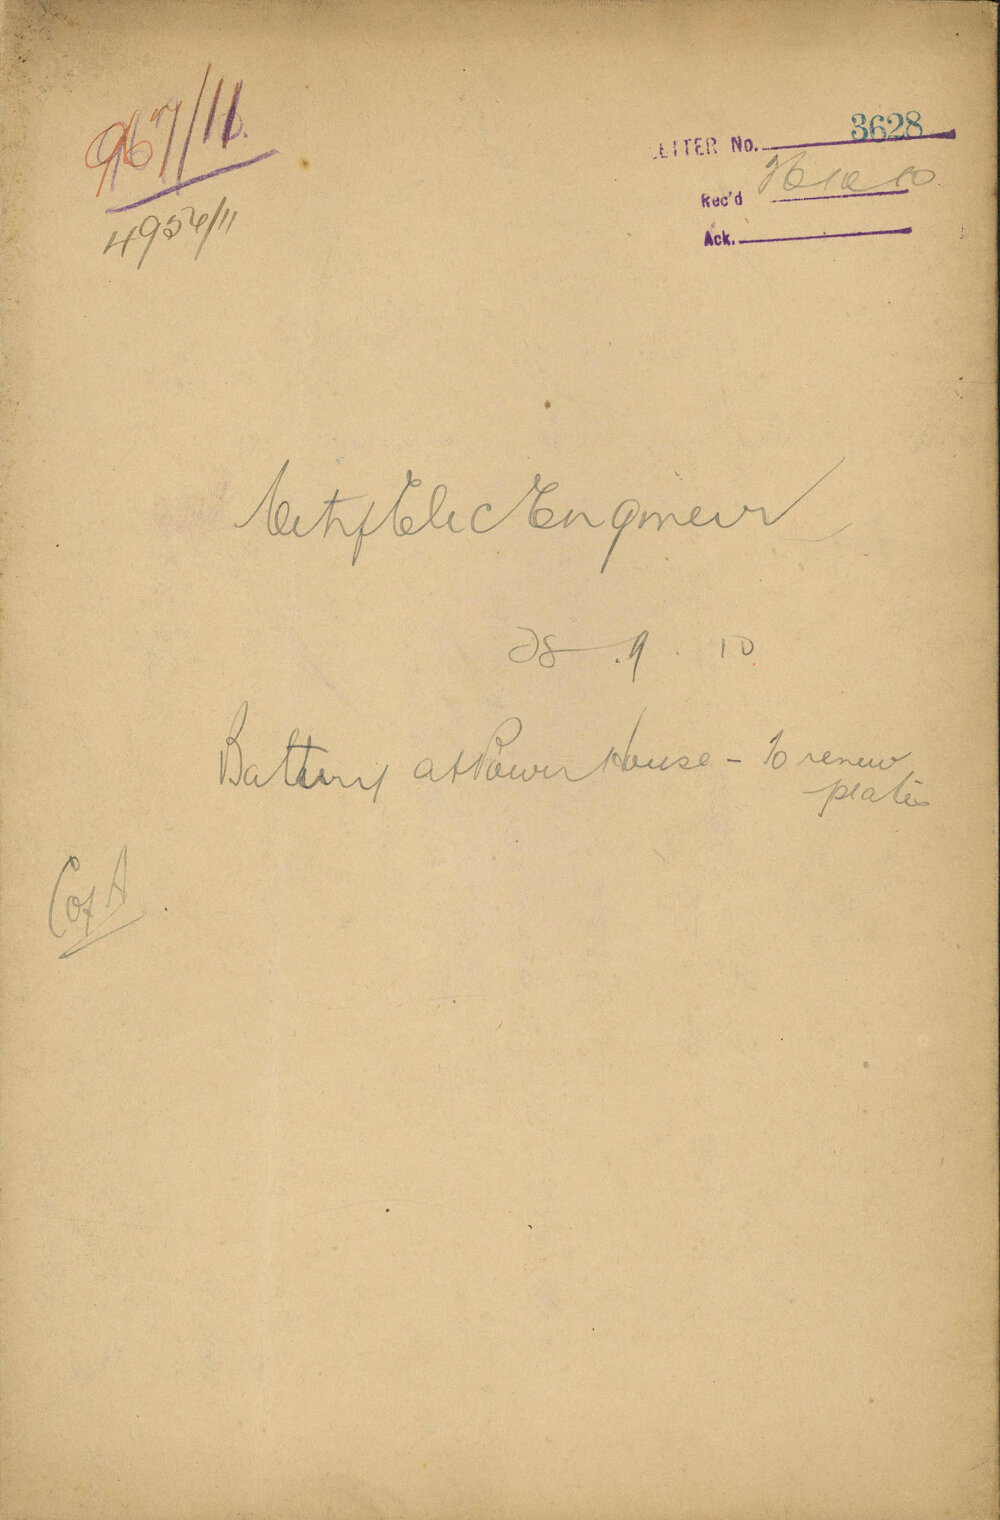 967/11.
4956/11
LETTER No. 3628
Rec'd 10 10
Ack.
City Elec Engineer
28.9.10
Battery at Power House - To renew
plates